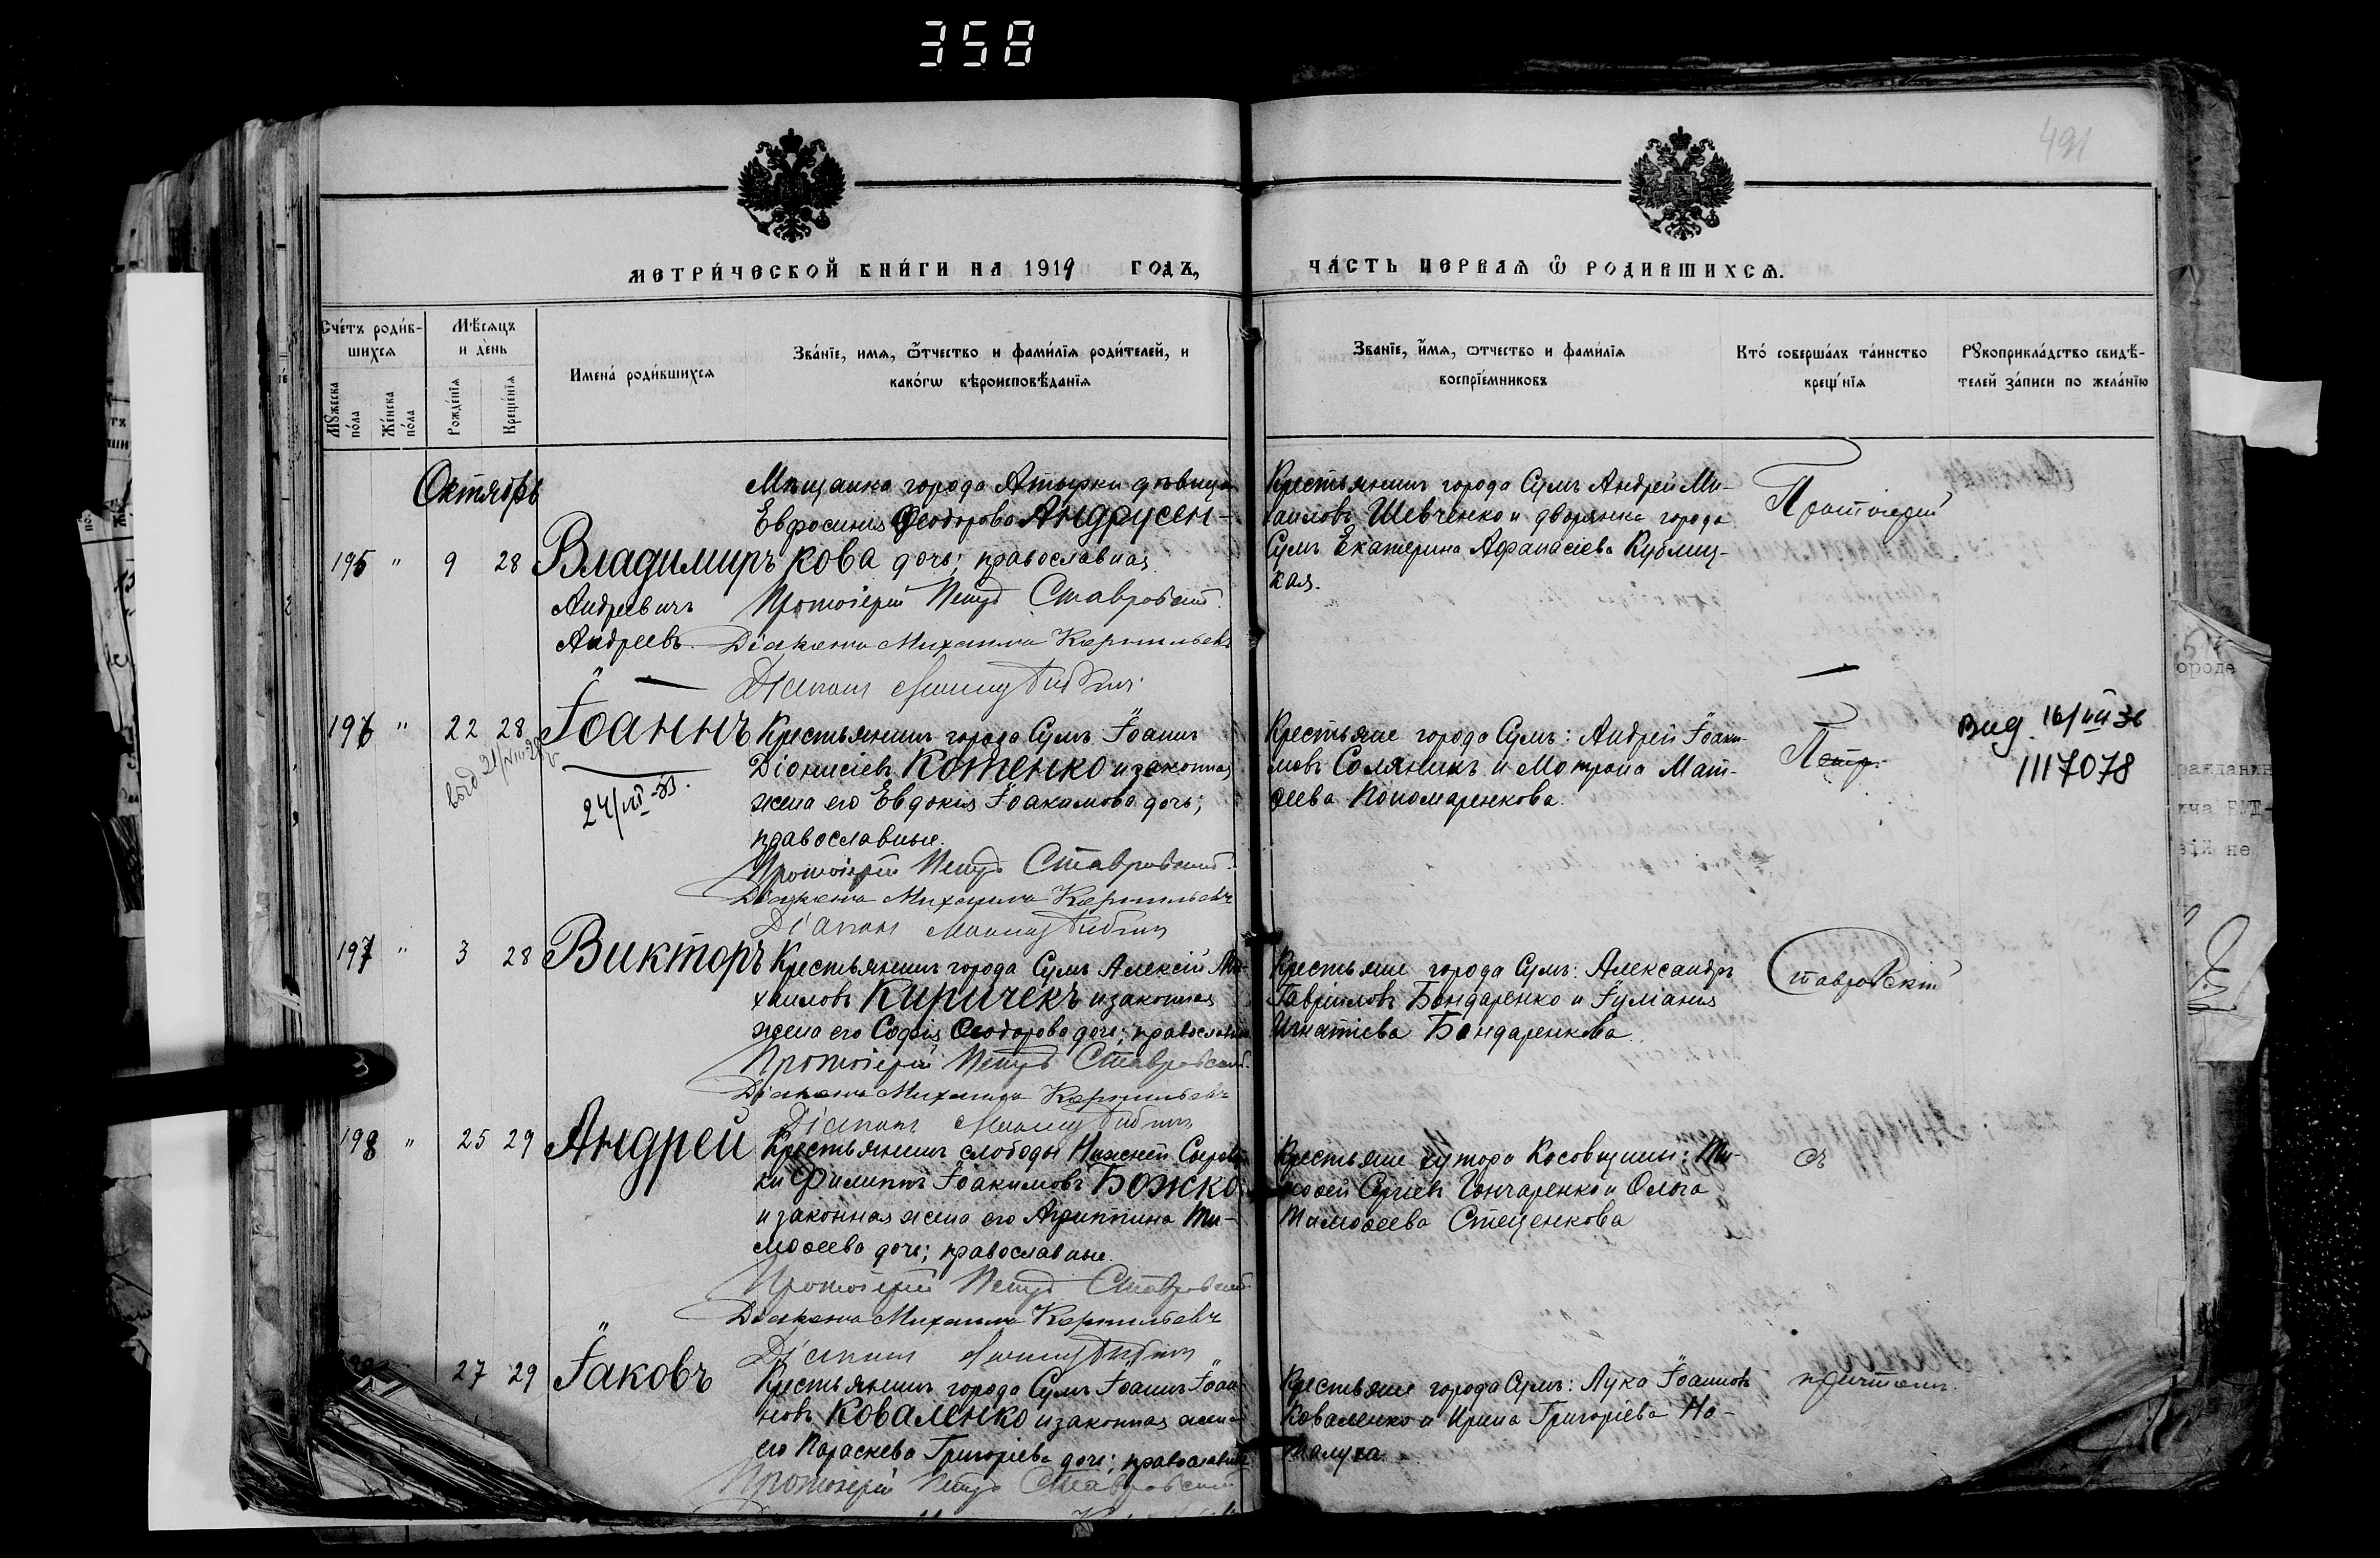 358
491
МЕТРИ́ЧЕСКОЙ КНИ́ГИ НА 1919 ГОДЪ,
ЧА́СТЬ ПЕРВАѦ Ѿ РОДИВШИХСѦ.
Сче́тъ роди́в-
шихсѧ
Мꙋ́жеска по́ла
Же́нска по́ла
Мѣ́сѧцъ
и де́нь
Рожде́нїѧ
Креще́нїѧ
Имена́ роди́вшихсѧ
Зва́нїе, имѧ, ѻ҆́тчество и фами́лїѧ роди́телей, и
како́гѡ вѣроисповѣ́данїѧ
Званїе, и҆́мѧ, ѻтчество и фами́лїѧ
воспрїе́мниковъ
Кто́ соверша́лъ та́инство
креще́нїѧ
Рꙋкоприкла́дство свидѣ́-
телей за́писи по жела́нїю
Октябрь
195 " 9 28 Владимиръ
Андреевичъ
Андреевъ
Мѣщанка города Ахтырки дѣвица
Евфросинія Ѳеодорова Андрусен-
кова дочь; православная
Протоіерей Петръ Ставровскій
Діаконъ Михаилъ
Діаконъ
Крестьянинъ города Сумъ Андрей Ми-
хаиловъ Шевченко и дворянка города
Сумъ Екатерина Афанасіева Кублиц-
кая.
Протоіерей
196 " 22 28 Іоаннъ
24/VII-33.
Крестьянинъ города Сумъ Іоаннъ
Діонисіевъ Котенко и законная
жена его Евдокія Іоакимова дочь;
православные.
Протоіерей Петръ Ставровскій
Діаконъ Михаилъ
Діаконъ
Крестьяне города Сумъ: Андрей Іоаки-
мовъ Соляникъ и Мотрона Мат-
ѳеева Пономаренкова.
Петръ
Выд. 16/VII 36
1117078
197 " 3 28 Викторъ
Крестьянинъ города Сумъ Алексій Ми-
хаиловъ Киричекъ и законная
жена его Софія Ѳеодорова дочь; православные
Протоіерей Петръ Ставровскій.
Діаконъ Михаилъ
Діаконъ
Крестьяне города Сумъ: Александръ
Гавріиловъ Бондаренко и Іуліанія
Игнатіева Бондаренкова.
Ставровскій
198 " 25 29 Андрей
Крестьянинъ слободы Нижней Сыроват-
ки Филиппъ Іоакимовъ Божко
и законная жена его Агриппина Ти-
моѳеева дочь; православные.
Протоіерей Петръ Ставровскій
Діаконъ Михаилъ
Діаконъ
Крестьяне хутора Косовщины: Ти-
моѳей Сергіевъ Гончаренко и Ольга
Тимоѳеева Стеценкова
съ
27 29 Іаковъ
Крестьянинъ города Сумъ Іоаннъ Іоан-
новъ Коваленко и законная жена
его Параскева Григоріева дочь; православные
Протоіерей Петръ Ставровскій
Крестьяне города Сумъ: Лука Іоанновъ
Коваленко и Ирина Григоріева На-
талуха
причтомъ.